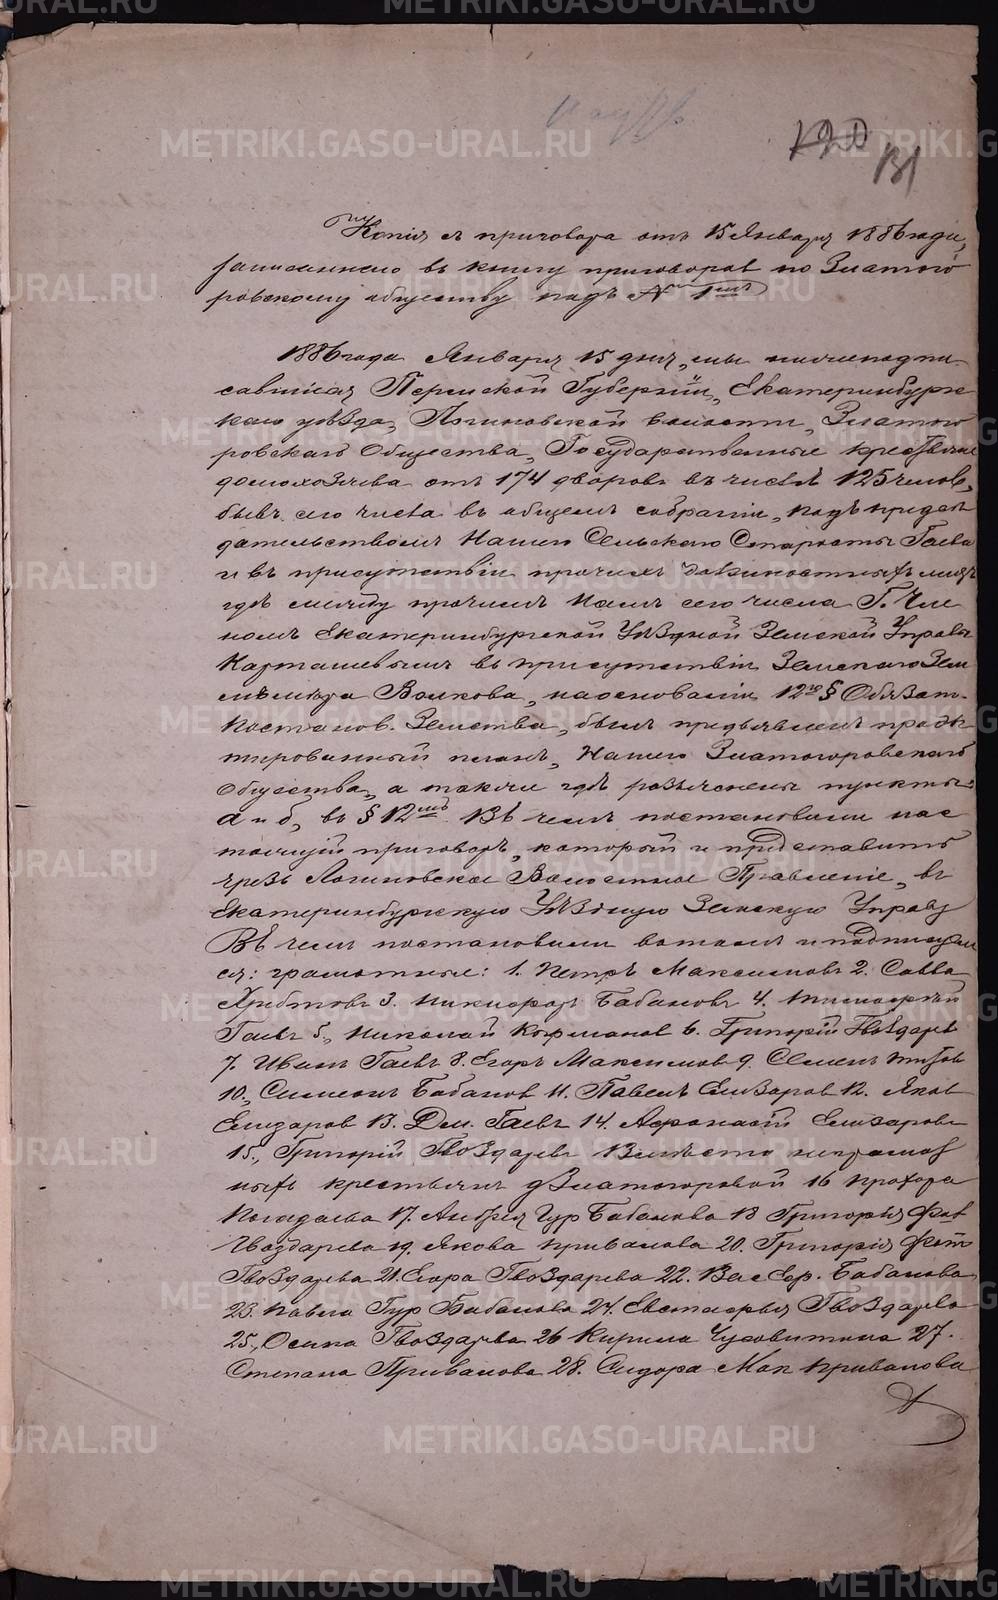 120
131
Копія съ приговора отъ 15 Января 1886 года,
записаннаго въ книгу приговоровъ по Златого
ровскому обществу подъ № 1мъ
1886 года Января 15 дня, мы нижеподпи
савшіяся Пермской Губерніи, Екатеринбургс
каго уѣзда, Логиновской волости, Златого
ровскаго Общества, Государственные крестьяне
домохозяева отъ 174 дворовъ въ числѣ 125 человѣ,
бывъ сего числа въ общемъ собраніи, подъ предсѣ
дательствомъ нашего Сельскаго Старосты Гаева
и въ присутствіи прочихъ должностныхъ лицъ
гдѣ между прочимъ намъ сего числа Г. Чле
номъ Екатеринбургской Уѣздной Земской Управы
Карташевымъ въ присутствіи Земскаго Зем
лемѣра Волкова, на основаніи 12го § Обязат.
Постанов. Земства, былъ предъявленъ проэк
тированный планъ, нашего Златогоровскаго
Общества, а также гдѣ разъяснены пункты:
а и б, въ § 12мъ. Въ чемъ постановили нас
тоящій приговоръ, который и представить
чрезъ Логиновское Волостное Правленіе, въ
Екатеринбургскую Уѣздную Земскую Управу
Въ чемъ постановили
ся: грамотные: 1. Петръ Максимовъ 2. Савва
3. Никифоръ Бабановъ 4. Тимофей
Гаевъ 5, Николай 6. Григорій Гвоздаревъ
7. Иванъ Гаевъ 8. Егоръ Максимовъ 9. Семенъ
10, Симеонъ Бабановъ 11. Павелъ Елизаровъ 12. Яковъ
Елизаровъ 13. Дем. Гаевъ 14. Афонасій Елизаровъ
15, Григорій Гвоздаревъ Вмѣсто неграмот
ныхъ крестьянъ д Златогоровой 16 Прохора
17. Андрея Гур Бабанова 18 Григорья
Гвоздарева 19. Якова Привалова 20. Григорія
Гвоздарева 21. Егора Гвоздарева 22. Вас Ер. Бабанова
23. Павла Гур Бабанова 24. Евстафья Гвоздарева
25, Осипа Гвоздарева 26 Кирила Чусовитина 27.
Степана Привалова 28. Сидора Мак Привалова
METRIKI.GASO-URAL.RU